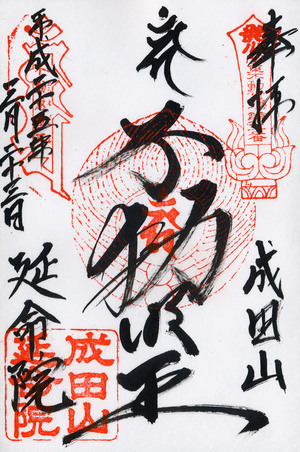 奉拝
成田山
不動明王
平成二十五年
三月二十三日
延命院
成田山
延命院